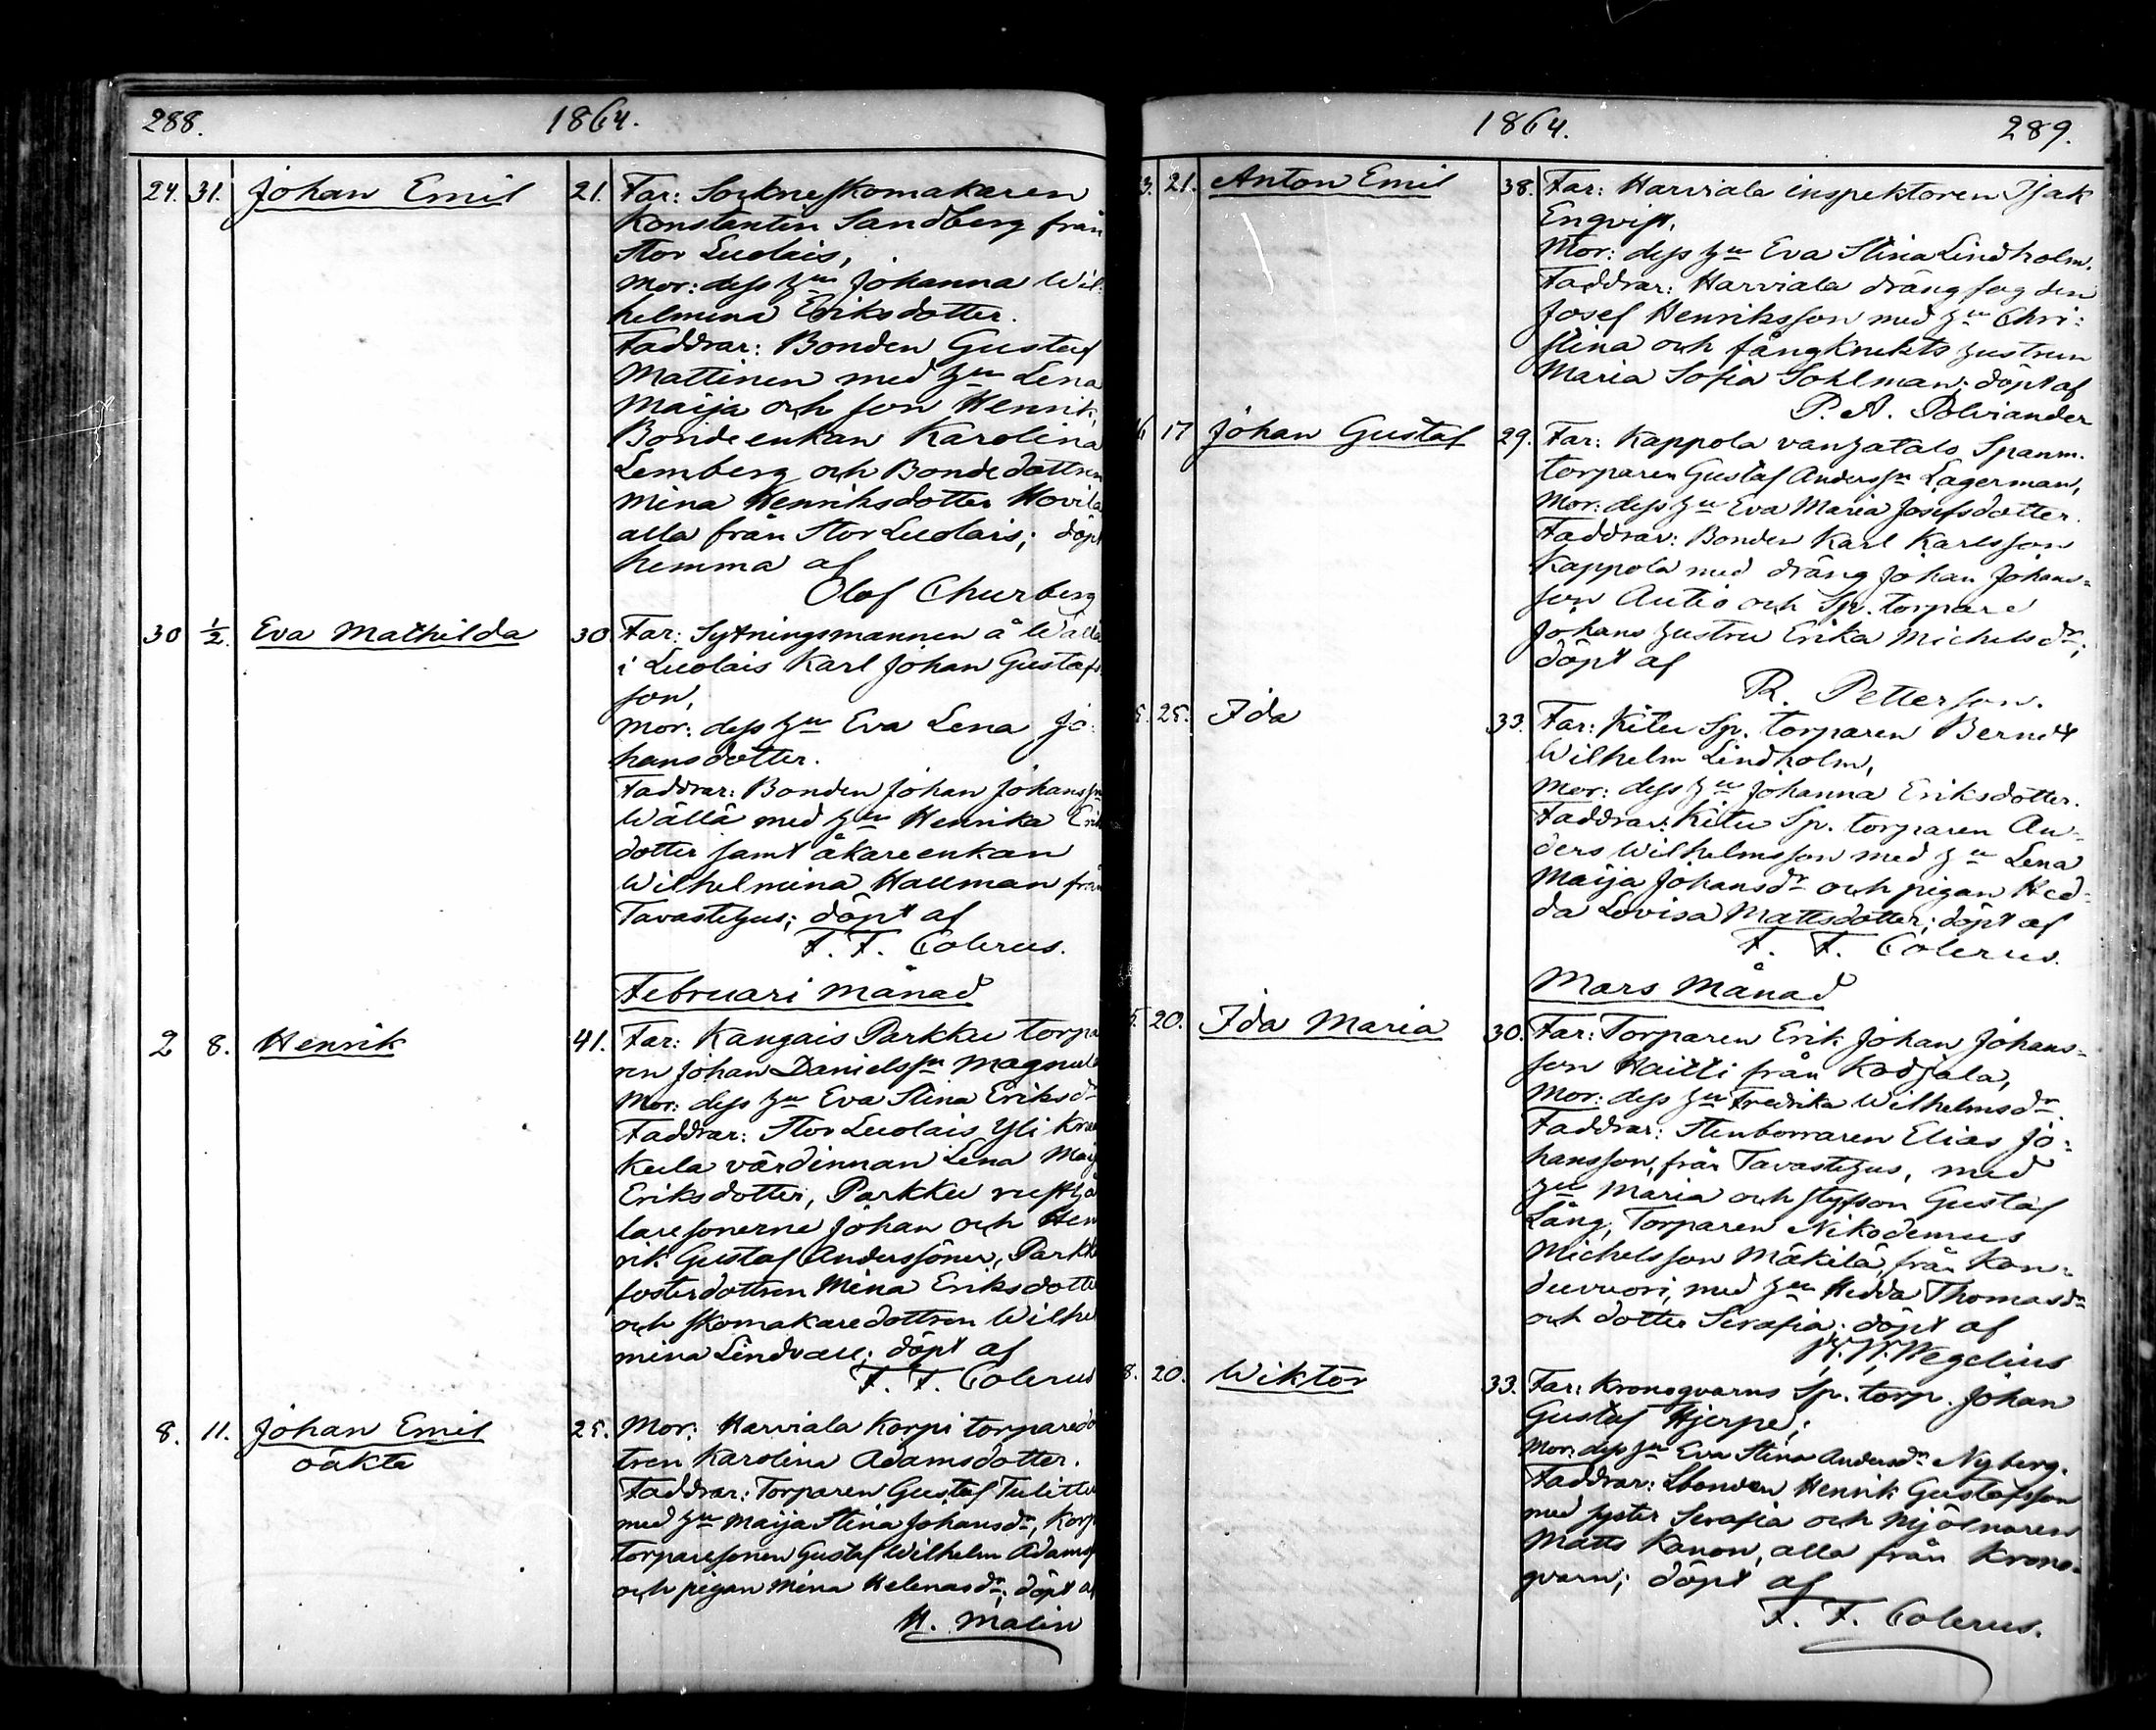 288. 1864.
24. 31. Johan Emil 21. Far: Socknesskomakaren
Konstantin Sandberg från
Stor Luolais,
Mor: dess hu Johanna Wil-
helmina Eriksdotter.
Faddrar: Bonden Gustaf
Mattinen med hu Lena
Maija och son Henrik,
Bondeenkan Karolina
Lemberg och Bondedottren
Mina Henriksdotter Hovila
alla från Stor Luolais; döpt
hemma af
Olof Churberg
30 1/2. Eva Mathilda 30 Far: Sytningsmannen å Wällä
i Luolais Karl Johan Gustafs-
son,
Mor: dess hu Eva Lena Jo-
hansdotter.
Faddrar: Bonden Johan Johansson
Wällä med hu Henrika Eriks
dotter samt åkareenkan
Wilhelmina Hallman från
Tavastehus; döpt af
F. F. Colerus.
Februari månad
2 8. Henrik 41. Far: Kangais Parkku torpa
ren Johan Danielssn Magnula
Mor: dess hu Eva Stina Eriksdr
Faddrar: Stor Luolais Yli
kula värdinnan Lena Maij
Eriksdotter, Parkku rusthå
laresönerne Johan och Hen
rik Gustaf Anderssöner, Parkku
fosterdottren Mina Eriksdotter
och skomakaredottren Wilhel
mina Lindvall; döpt af
F. F. Colerus
8. 11. Johan Emil 25. Mor: Harviala Korpi torparedo
oäkta
tren Karolina Adamsdotter.
Faddrar: Torparen Gustaf Tulittu
med hu Maija Stina Johansdr, Korpi
torparesonen Gustaf Wilhelm Adams
och pigan Mina Helenasdr; döpt af
H. Malin
1864. 289.
3. 21. Anton Emil 38. Far: Harviala inspektoren Isak
Engvist,
Mor: dess hu Eva Stina Lindholm.
Faddrar: Harviala drängfogden
Josef Henriksson med hu Chri-
stina och fångknekts hustrun
Maria Sofia Sohlman; döpt af
P. A. Polviander
16 17 Johan Gustaf 29. Far: Kappola vanhatalo Spanm.
torparen Gustaf Anderssn Lagerman,
Mor: dess hu Eva Maria Josefsdotter.
Faddrar: Bonden Karl Karlsson
Kappola med dräng Johan Johans-
son Autio och Sp. torpare
Johans hustru Erika Michelsdr;
döpt af
R. Petterson.
5. 25. Ida 33. Far: Kitu Sp. torparen Berndt
Wilhelm Lindholm,
Mor: dess hu Johanna Eriksdotter.
Faddrar: Kitu Sp. torparen An-
ders Wilhelmsson med hu Lena
Maija Johansdr och pigan Hed-
da Lovisa Mattsdotter; döpt af
F. F. Colerus.
Mars Månad
5. 20. Ida Maria 30. Far: Torparen Erik Johan Johans-
son Haitti från Kodjala,
Mor: dess hu Fredrika Wilhelmsdr.
Faddrar: Stenborraren Elias Jo-
hansson, från Tavastehus, med
hu Maria och styfson Gustaf
Lång, Torparen Nikodemus
Michelsson Mäkilä från Kan-
duvuori, med hu Hedda Thomasdr
och dotter Serafia; döpt af
W. Wegelius
8. 20. Wiktor 33. Far: Kronoqvarns Sp. torp. Johan
Gustaf Hjerpe;
Mor: dess hu Eva Stina Andersdr Nyberg.
Faddrar: Lbonden Henrik Gustafsson
med syster Serafia och Mjölnaren
Matts Kanon, alla från Krono-
qvarn; döpt af
F. F. Colerus.